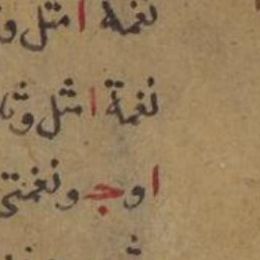 نغمة ا مثل و
نغمة ا مثل وثا
ا و ج ونغمتي